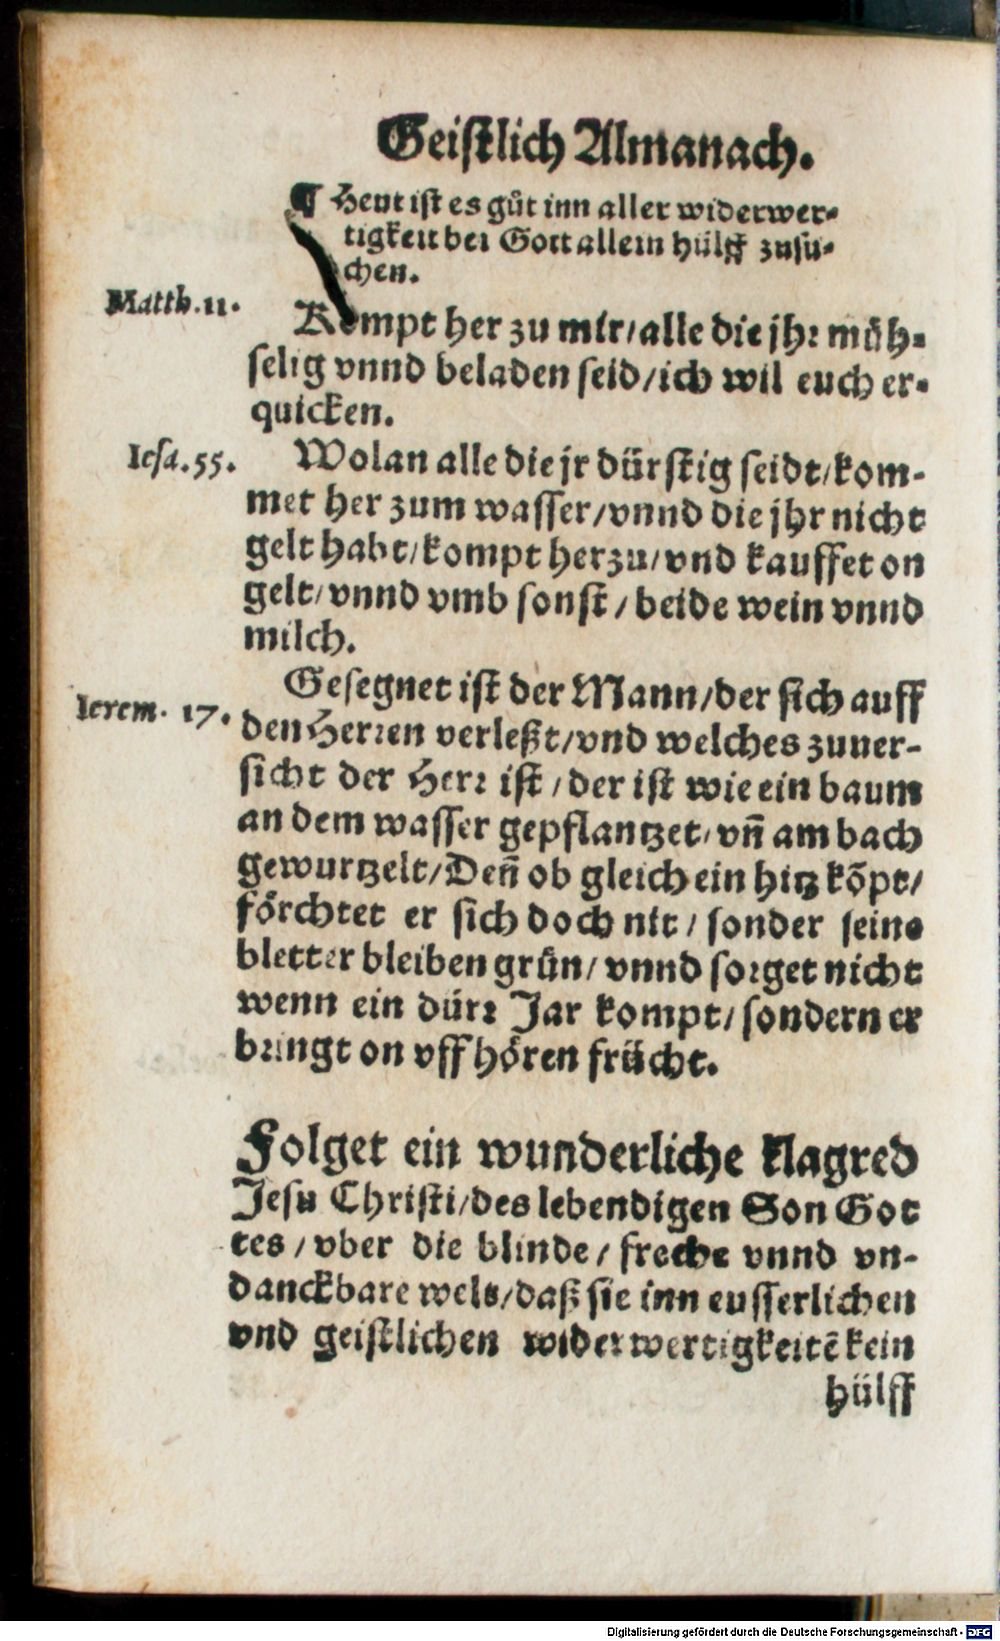 Geistlich Almanach.
¶ Heut ist es gůt inn aller widerwer-
tigkeit bei Gott allein hülff zusů-
chen.
Matth. 11.
Kompt her zu mir/alle die jhr můh-
selig vnnd beladen seid/ich wil euch er-
quicken.
Iesa. 55.
Wolan alle die jr dürstig seidt/kom-
met her zum wasser/vnnd die jhr nicht
gelt habt/kompt herzu/vnd kauffet on
gelt/vnnd vmb sonst/beide wein vnnd
milch.
Ierem. 17.
Gesegnet ist der Mann/der sich auff
den Herren verleßt/vnd welches zuuer-
sicht der Herr ist/der ist wie ein baum
an dem wasser gepflantzet/vñ am bach
gewurtzelt/Deñ ob gleich ein hitz kõpt/
förchtet er sich doch nit/sonder seine
bletter bleiben grůn/vnnd sorget nicht
wenn ein dürr Jar kompt/sondern er
bringt on vffhören frücht.
Folget ein wunderliche klagred
Jesu Christi/des lebendigen Son Got
tes/vber die blinde/freche vnnd vn-
danckbare welt/daß sie inn eusserlichen
vnd geistlichen widerwertigkeitẽ kein
hülff
Digitalisierung gefördert durch die Deutsche Forschungsgemeinschaft - DFG